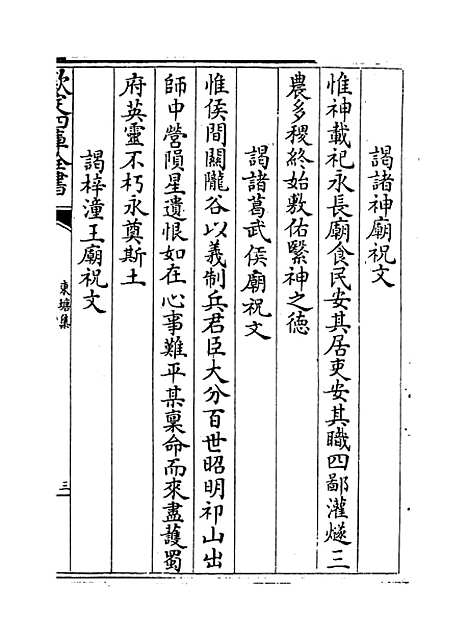 謁諸神廟祝文
惟神載祀永長廟食民安其居吏安其職四鄙灌燧三
農多稷終始敷佑緊神之德
謁諸葛武侯廟祝文
惟侯間關隴谷以義制兵君臣大分百世昭明祁山出
師中營隕星遺恨如在心事難平某稟命而來盡護蜀
府英靈不朽永奠斯土
謁梓潼王廟祝文
欽定四庫全書
東塘集
三